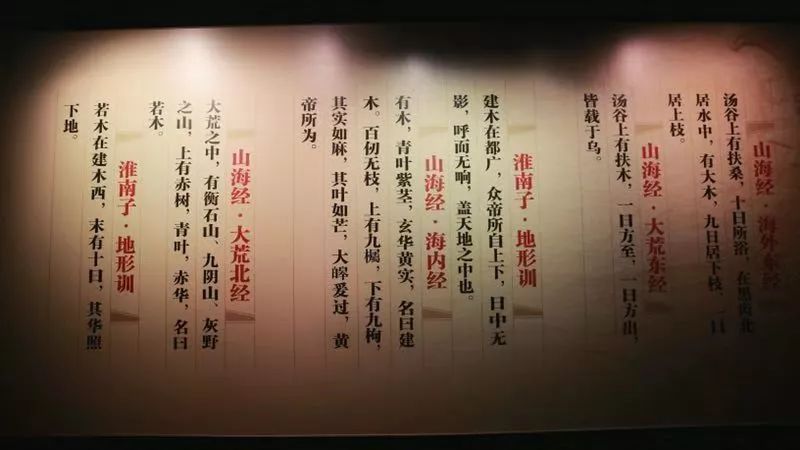 山海经·海外东经
汤谷上有扶桑，十日所浴，在黑齿北
居水中，有大木，九日居下枝，一日
居上枝。
山海经·大荒东经
汤谷上有扶木，一日方至，一日方出，
皆载于乌。
淮南子·地形训
建木在都广，众帝所自上下，日中无
影，呼而无响，盖天地之中也。
山海经·海内经
有木，青叶紫茎，玄华黄实，名曰建
木。百仞无枝，上有九欘，下有九枸，
其实如麻，其叶如芒，大皞爰过，黄
帝所为。
山海经·大荒北经
大荒之中，有衡石山、九阴山、灰野
之山，上有赤树，青叶，赤华，名曰
若木。
淮南子·地形训
若木在建木西，末有十日，其华照
下地。